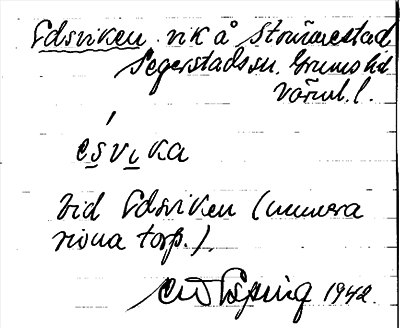 Edsviken vik å Strömmestad
Segerstads sn. Grums hd
Värml. l.
ésvika
vid Edsviken (numera
rivna torp.).
1942